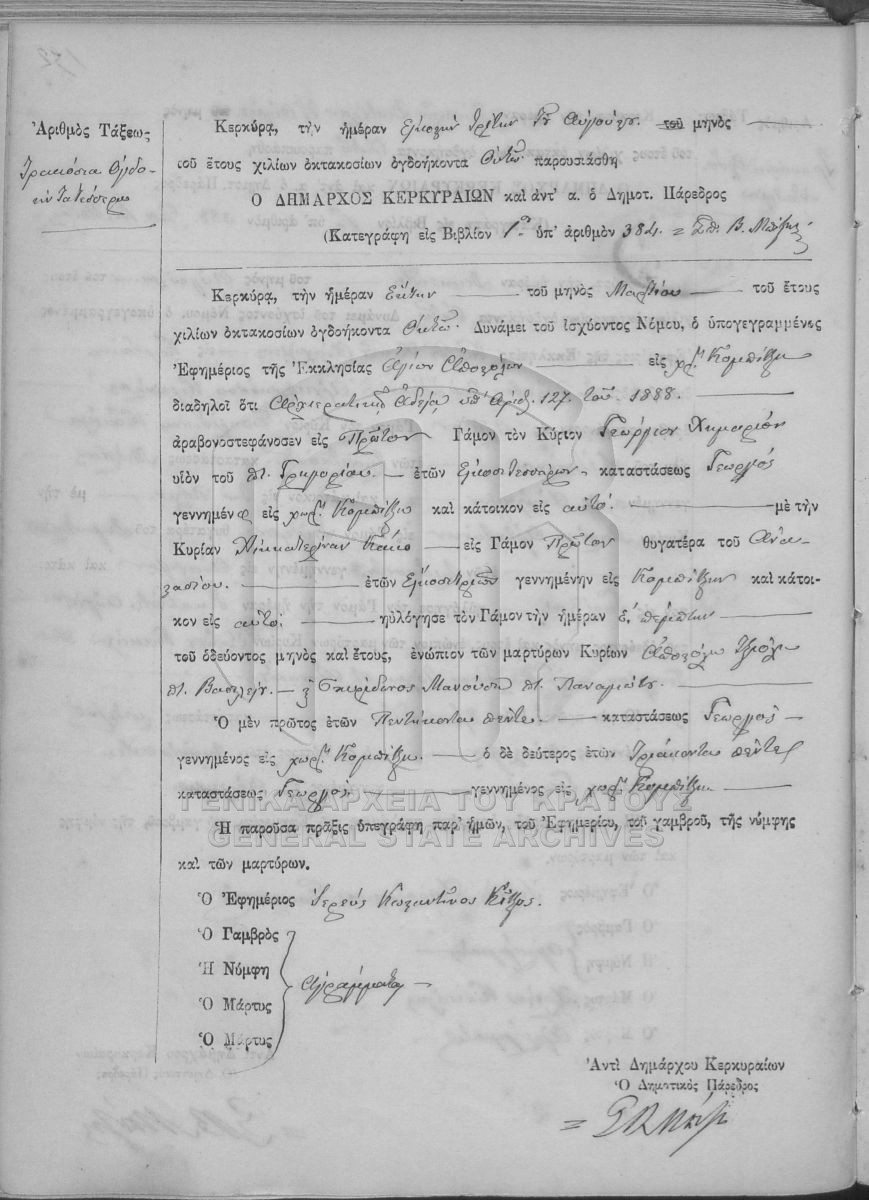 Ἀριθμὸς Τάξεως
Τριακόσια Ὀγδο-
ήντα τέσσερα
Κερκύρᾳ, τὴν ἡμέραν Εἰκοστὴν τρίτην τ Αὐγούστου. τοῦ μηνὸς
τοῦ ἔτους χιλίων ὀκτακοσίων ὀγδοήκοντα Ὀκτὼ παρουσιάσθη
Ὁ ΔΗΜΑΡΧΟΣ ΚΕΡΚΥΡΑΙΩΝ καὶ ἀντ' α. ὁ Δημοτ. Πάρεδρος
(Κατεγράφη εἰς Βιβλίον 1ον ὑπ' ἀριθμὸν 384. =
Κερκύρᾳ, τὴν ἡμέραν Ἕκτην τοῦ μηνὸς Μαρτίου τοῦ ἔτους
χιλίων ὀκτακοσίων ὀγδοήκοντα Ὀκτὼ. Δυνάμει τοῦ ἰσχύοντος Νόμου, ὁ ὑπογεγραμμένος
Ἐφημέριος τῆς Ἐκκλησίας Ἁγίων Ἀποστόλων εἰς χωρ. Κομπίτζι
διαδηλοῖ ὅτι Ἀρχιερατικῇ Ἀδείᾳ ὑπ' Ἀριθ. 127. τοῦ 1888.
ἀραβονοστεφάνοσεν εἰς Πρῶτον Γάμον τὸν Κύριον Γεώργιον Χημαριὸν
υἱὸν τοῦ ποτ. Γρηγορίου. ἐτῶν Εἰκοσιτεσσάρων, καταστάσεως Γεωργὸς
γεννημένο εἰς χωρ. Κομπίτζι καὶ κάτοικον εἰς αὐτό. μὲ τὴν
Κυρίαν Αἰκατερίναν Κάκο εἰς Γάμον Πρῶτον θυγατέρα τοῦ Ἀνα-
στασίου. ἐτῶν Εἰκοσιτριῶν γεννημένην εἰς Κομπίτζι καὶ κάτοι-
κον εἰς αὐτό: ηὐλόγησε τὸν Γάμον τὴν ἡμέραν πέμπτην
τοῦ ὁδεύοντος μηνὸς καὶ ἔτους, ἐνώπιον τῶν μαρτύρων Κυρίων Ἀποστόλου
ποτ. Βασιλείου. Σπιρίδωνος Μανούση ποτ. Παναγιώτου.
Ὁ μὲν πρῶτος ἐτῶν Πεντήκοντα πέντε. καταστάσεως Γεωργὸς
γεννημένος εἰς χωρ. Κομπίτζι. ὁ δὲ δεύτερος ἐτῶν Τριάκοντα πέντε
καταστάσεως Γεωργός. γεννημένος εἰς χωρ. Κομπίτζι.
ΓΕΝΙΚΑ ΑΡΧΕΙΑ ΤΟΥ ΚΡΑΤΟΥΣ
GENERAL STATE ARCHIVES
Ἡ παροῦσα πρᾶξις ὑπεγράφη παρ' ἡμῶν, τοῦ Ἐφημερίου, τοῦ γαμβροῦ, τῆς νύμφης
καὶ τῶν μαρτύρων.
Ὁ Ἐφημέριος Ἱερεὺς Κωσταντῖνος
Ὁ Γαμβρὸς
Ἡ Νύμφη
Ἀγράμματοι
Ὁ Μάρτυς
Ὁ Μάρτυς
Ἀντὶ Δημάρχου Κερκυραίων
Ὁ Δημοτικὸς Πάρεδρος